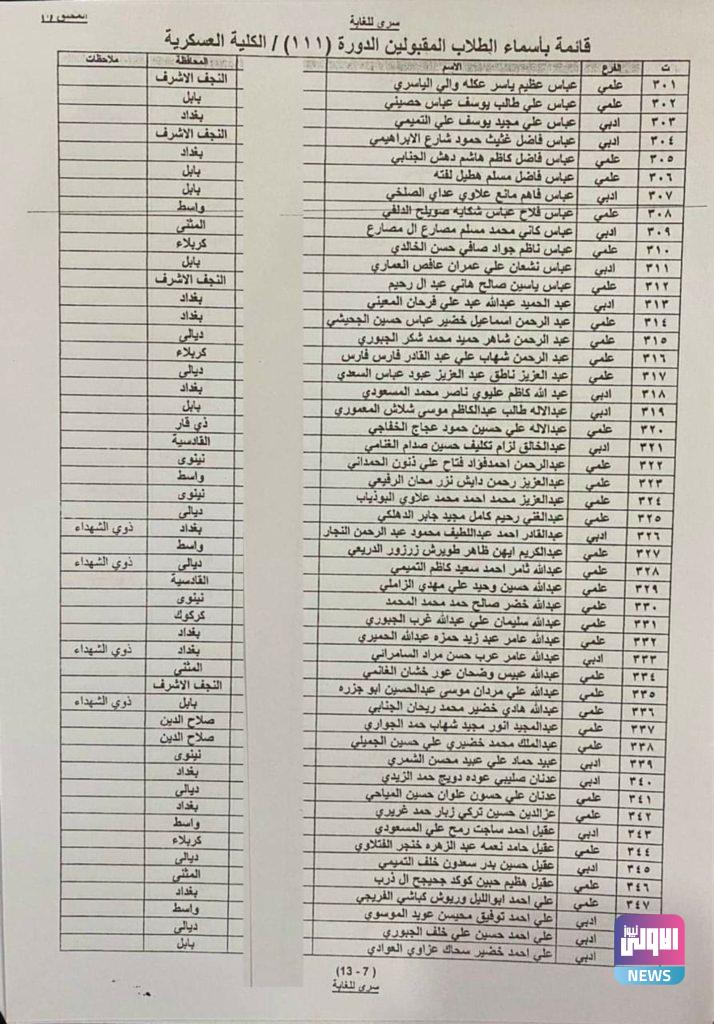 سري للغاية
الملحق (٦)
قائمة بأسماء الطلاب المقبولين الدورة (١١١) / الكلية العسكرية
ت الفرع الاسم المحافظة ملاحظات
٣٠١ علمي عباس عظيم ياسر عكله والي الياسري النجف الاشرف
٣٠٢ علمي عباس علي طالب يوسف عباس حصيني بابل
٣٠٣ ادبي عباس علي مجيد يوسف علي التميمي بغداد
٣٠٤ ادبي عباس فاضل غثيث حمود شارع الابراهيمي النجف الاشرف
٣٠٥ علمي عباس فاضل كاظم هاشم دهش الجنابي بغداد
٣٠٦ علمي عباس فاضل مسلم هطيل لفته بابل
٣٠٧ ادبي عباس فاهم مانع علاوي عداي الصلخي بابل
٣٠٨ علمي عباس فلاح عباس شكايه صويلح الدلفي واسط
٣٠٩ ادبي عباس كاني محمد مسلم مصارع ال مصارع المثنى
٣١٠ علمي عباس ناظم جواد صافي حسن الخالدي كربلاء
٣١١ ادبي عباس نشعان علي عمران عافص العماري بابل
٣١٢ علمي عباس ياسين صالح هاني عبد ال رحيم النجف الاشرف
٣١٣ ادبي عبد الحميد عبدالله عبد علي فرحان المعيني بغداد
٣١٤ علمي عبد الرحمن اسماعيل خضير عباس حسين الجحيشي بغداد
٣١٥ علمي عبد الرحمن شاهر حميد محمد شكر الجبوري ديالى
٣١٦ علمي عبد الرحمن شهاب علي عبد القادر فارس فارس كربلاء
٣١٧ علمي عبد العزيز ناطق عبد العزيز عبود عباس السعدي ديالى
٣١٨ ادبي عبد الله كاظم عليوي ناصر محمد المسعودي بغداد
٣١٩ ادبي عبدالاله طالب عبدالكاظم موسى شلاش المعموري بابل
٣٢٠ علمي عبدالاله علي حسين حمود عجاج الخفاجي ذي قار
٣٢١ ادبي عبدالخالق لزام تكليف حسين صدام الغنامي القادسية
٣٢٢ علمي عبدالرحمن احمدفؤاد فتاح علي ذنون الحمداني نينوى
٣٢٣ علمي عبدالعزيز رحمن دايش نزر محان الرفيعي واسط
٣٢٤ علمي عبدالعزيز محمد احمد محمد علاوي البوذياب نينوى
٣٢٥ علمي عبدالغني رحيم كامل مجيد جابر الدهلكي ديالى
٣٢٦ ادبي عبدالقادر احمد عبداللطيف محمود عبد الرحمن النجار بغداد ذوي الشهداء
٣٢٧ علمي عبدالكريم ايهن ظاهر طويرش زرزور الدريعي واسط
٣٢٨ علمي عبدالله ثامر احمد سعيد كاظم التميمي ديالى ذوي الشهداء
٣٢٩ علمي عبدالله حسين وحيد علي مهدي الزاملي القادسية
٣٣٠ علمي عبدالله خضر صالح حمد محمد المحمد نينوى
٣٣١ علمي عبدالله سليمان علي عبدالله غرب الجبوري كركوك
٣٣٢ علمي عبدالله عامر عبد زيد حمزه عبدالله الحميري بغداد
٣٣٣ ادبي عبدالله عامر عرب حسن مراد السامرائي بغداد ذوي الشهداء
٣٣٤ علمي عبدالله عبيس وضحان عور خشان الغانمي المثنى
٣٣٥ علمي عبدالله علي مردان موسى عبدالحسين ابو جزره النجف الاشرف
٣٣٦ علمي عبدالله هادي خضير محمد ريحان الجنابي بابل ذوي الشهداء
٣٣٧ علمي عبدالمجيد انور مجيد شهاب حمد الجواري صلاح الدين
٣٣٨ علمي عبدالملك محمد خضيري علي حسين الجميلي صلاح الدين
٣٣٩ ادبي عبيد حماد علي عبيد محسن الشمري نينوى
٣٤٠ ادبي عدنان صليبي عوده دويج حمد الزيدي بغداد
٣٤١ علمي عدنان علي حسون علوان حسين المياحي ديالى
٣٤٢ علمي عزالدين حسين تركي زبار حمد غريري بغداد
٣٤٣ ادبي عقيل احمد ساجت رمح علي المسعودي واسط
٣٤٤ علمي عقيل حامد نعمه عبد الزهره خنجر الفتلاوي كربلاء
٣٤٥ ادبي عقيل حسين بدر سعدون خلف التميمي ديالى
٣٤٦ علمي عقيل هظيم حبين كوكد جحيجح ال ذرب المثنى
٣٤٧ علمي علي احمد ابوالليل وريوش كباشي الفريجي بغداد
ادبي علي احمد توفيق محيسن عويد الموسوي واسط
ادبي علي احمد حسين علي خلف الجبوري بغداد
ادبي علي احمد خضير سحاك عزاوي العوادي بابل
(13 - 7)
سري للغاية
الاولى نيوز
NEWS